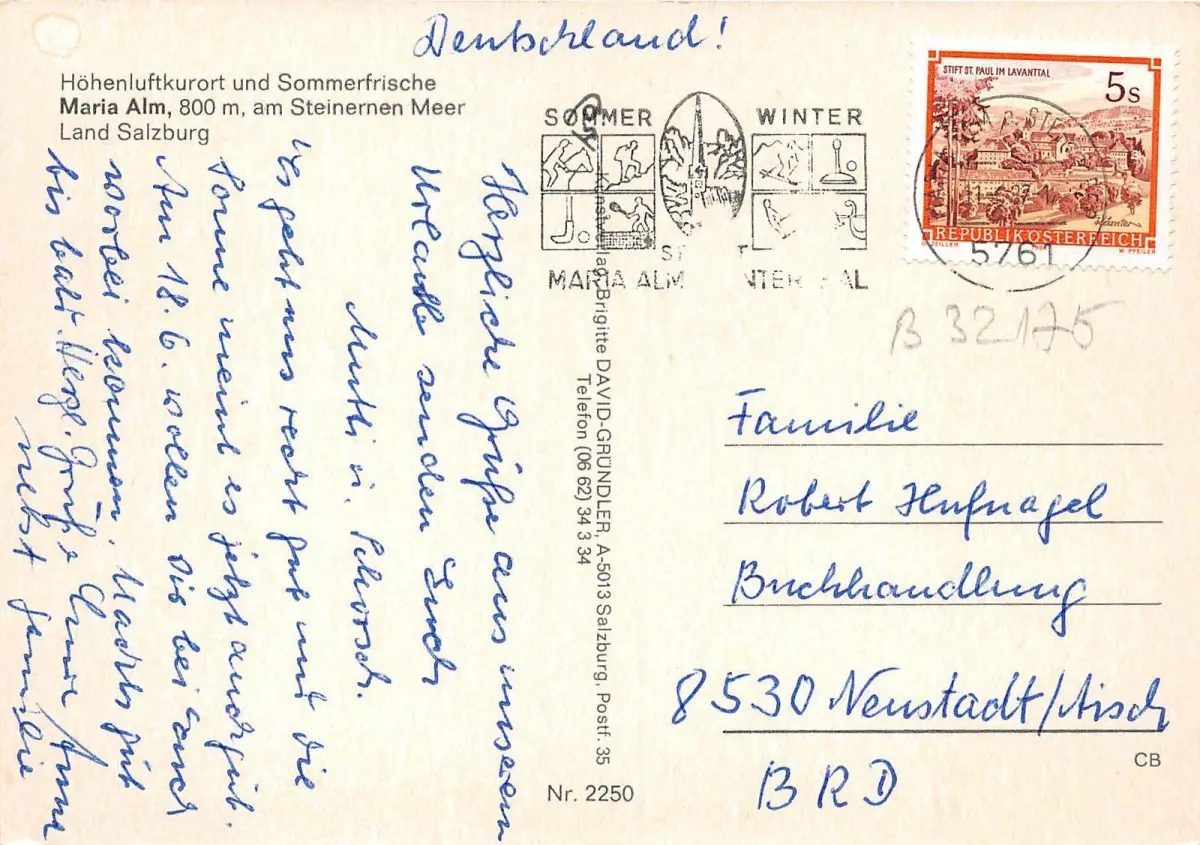 Deutschland!
Höhenluftkurort und Sommerfrische
Maria Alm, 800 m, am Steinernen Meer
Land Salzburg
SOMMER WINTER
MARIA ALM
STIFT ST. PAUL IM LAVANTTAL
5s
REPUBLIK ÖSTERREICH
G. ZEILLER
W. PFEILER
5761
B 32175
Herzliche Grüße aus unserem
Urlaub senden Euch
Mutti u. Schorsch.
es geht uns recht gut und die
Sonne meint es jetzt auch gut.
Am 18.6. wollen wir bei Euch
vorbei kommen. Machts gut
bis bald. Herzl. Grüße Anna
nebst Familie
Brigitte DAVID-GRÜNDLER, A-5013 Salzburg, Postf. 35
Telefon (06 62) 34 3 34
Nr. 2250
Familie
Robert Hufnagel
Buchhandlung
8530 Neustadt/Aisch
BRD
CB